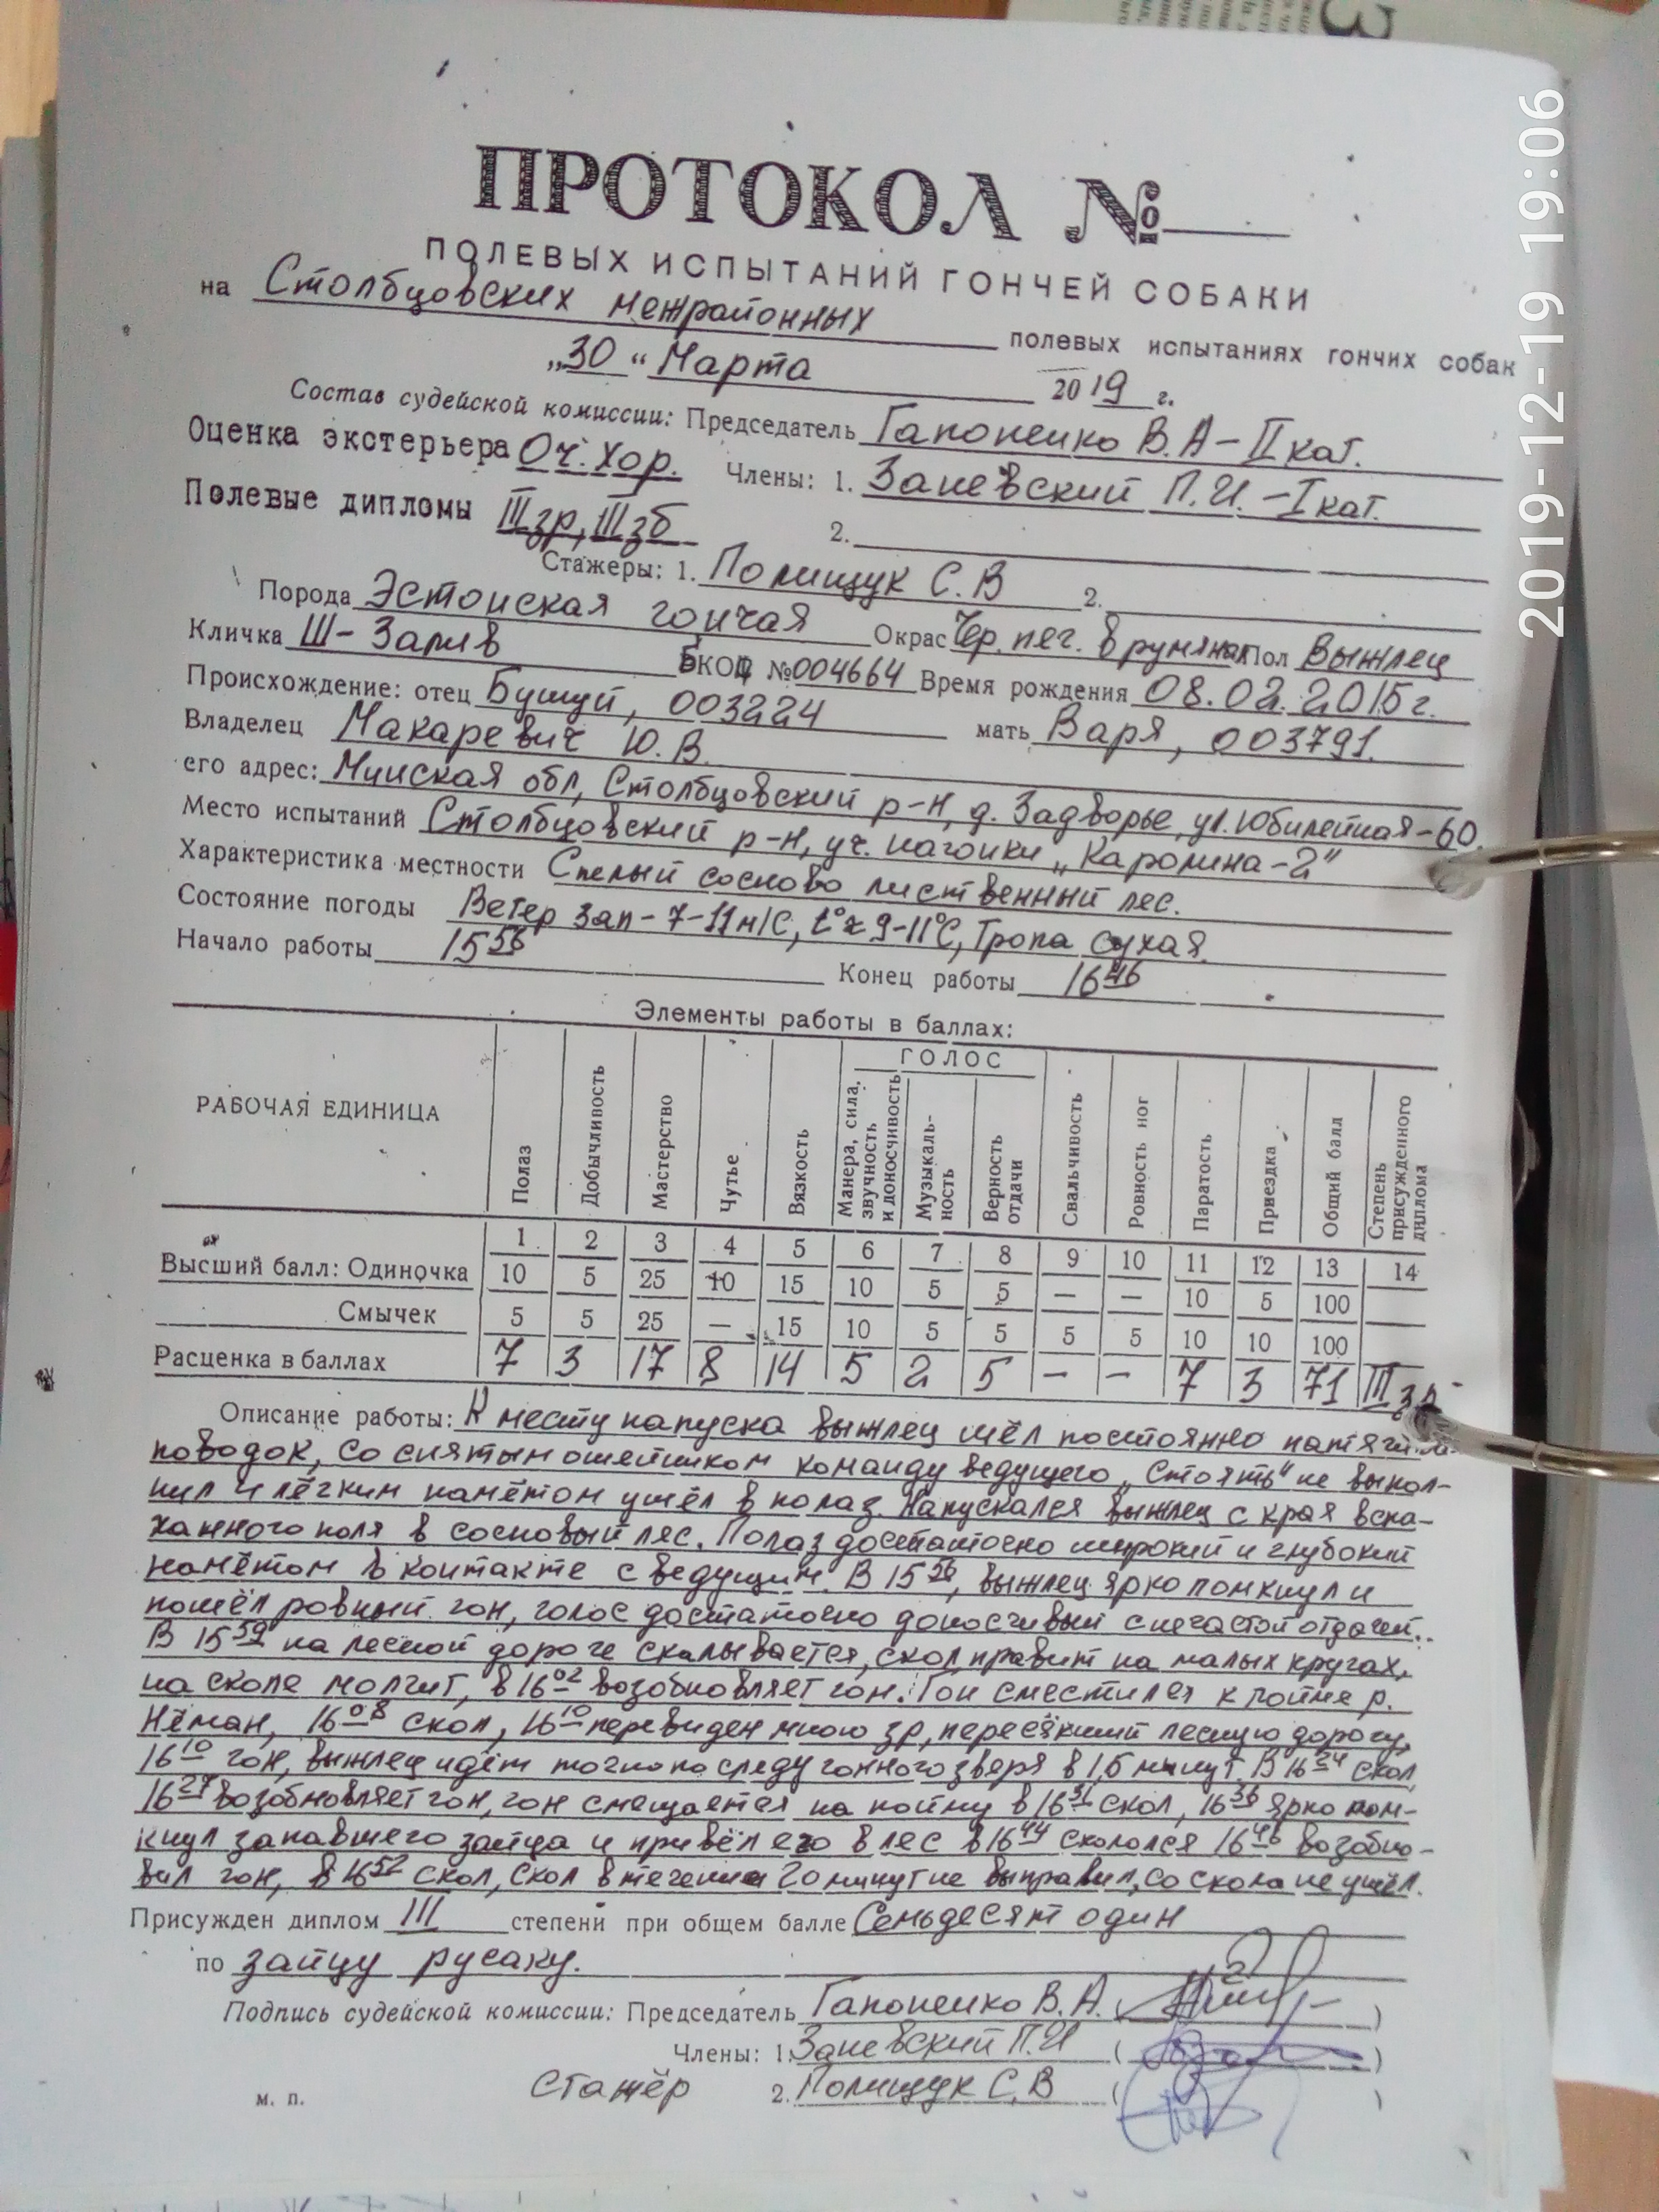 ПРОТОКОЛ №
ПОЛЕВЫХ ИСПЫТАНИЙ ГОНЧЕЙ СОБАКИ
на Столбцовских межрайонных полевых испытаниях гончих собак
„30“ Марта 2019 г.
Состав судейской комиссии: Председатель Гапоненко В.А – II кат.
Оценка экстерьера Оч. Хор. Члены: 1. Заневский П.И. – I кат.
Полевые дипломы III зр, III зб 2.
Стажеры: 1. Полищук С.В 2.
Порода Эстонская гончая Окрас Чер. пег. в румянах Пол Выжлец
Кличка Ш- Залив БКО № 004664 Время рождения 08.02.2015г.
Происхождение: отец Бушуй, 003224 мать Варя, 003791.
Владелец Макаревич Ю.В.
его адрес: Минская обл, Столбцовский р-н, д. Задворье, ул. Юбилейная-60.
Место испытаний Столбцовский р-н, уч. нагонки „Каролина-2"
Характеристика местности Спелый сосново лиственный лес.
Состояние погоды Ветер Зап-7-11м/с, t° ≈ 9-11°С, Тропа сухая.
Начало работы 15 56 Конец работы 16 46
Элементы работы в баллах:
РАБОЧАЯ ЕДИНИЦА Полаз Добычливость Мастерство Чутье Вязкость ГОЛОС Манера, сила, звучность и доносчивость Музыкаль-ность Верность отдачи Свальчивость Ровность ног Паратость Привездка Общий балл Степень присужденного диплома
1 2 3 4 5 6 7 8 9 10 11 12 13 14
Высший балл: Одиночка 10 5 25 10 15 10 5 5 — — 10 5 100
Смычек 5 5 25 — 15 10 5 5 5 5 10 10 100
Расценка в баллах 7 3 17 8 14 5 2 5 – – 7 3 71 III зр
Описание работы: К месту напуска выжлец шёл постоянно
поводок, со снятым ошейником команду ведущего „Стоять" не выпол-
нил и лёгким намётом ушёл в полаз. Напускался выжлец с края вспа-
ханного поля в сосновый лес. Полаз достаточно широкий и глубокий
намётом в контакте с ведущим. В 15 56, выжлец ярко помкнул и
пошёл ровный гон, голос достаточно доносчивый с нечастой отдачей.
В 15 59 на лесной дороге скалывается, скол правит на малых кругах,
на сколе молчит, в 16 02 возобновляет гон. Гон сместился к пойме р.
Нёман, 16 08 скол, 16 10 перевиден мною зр, пересёкший лесную дорогу,
16 10 гон, выжлец идёт точно по следу гонного зверя в 1,5 минут. В 16 24 скол,
16 27 возобновляет гон, гон смещается на пойму в 16 31 скол, 16 36 ярко пом-
кнул запавшего зайца и привёл его в лес в 16 44 скололся 16 46 возобно-
вил гон, в 16 52 скол, скол в течении 20 минут не выправил, со скола не ушёл.
Присужден диплом III степени при общем балле Семьдесят один
по зайцу русаку.
Подпись судейской комиссии: Председатель Гапоненко В.А. ( )
Члены: 1. Заневский П.И ( )
м. п. Стажёр 2. Полищук С,В ( )
2019-12-19 19:06